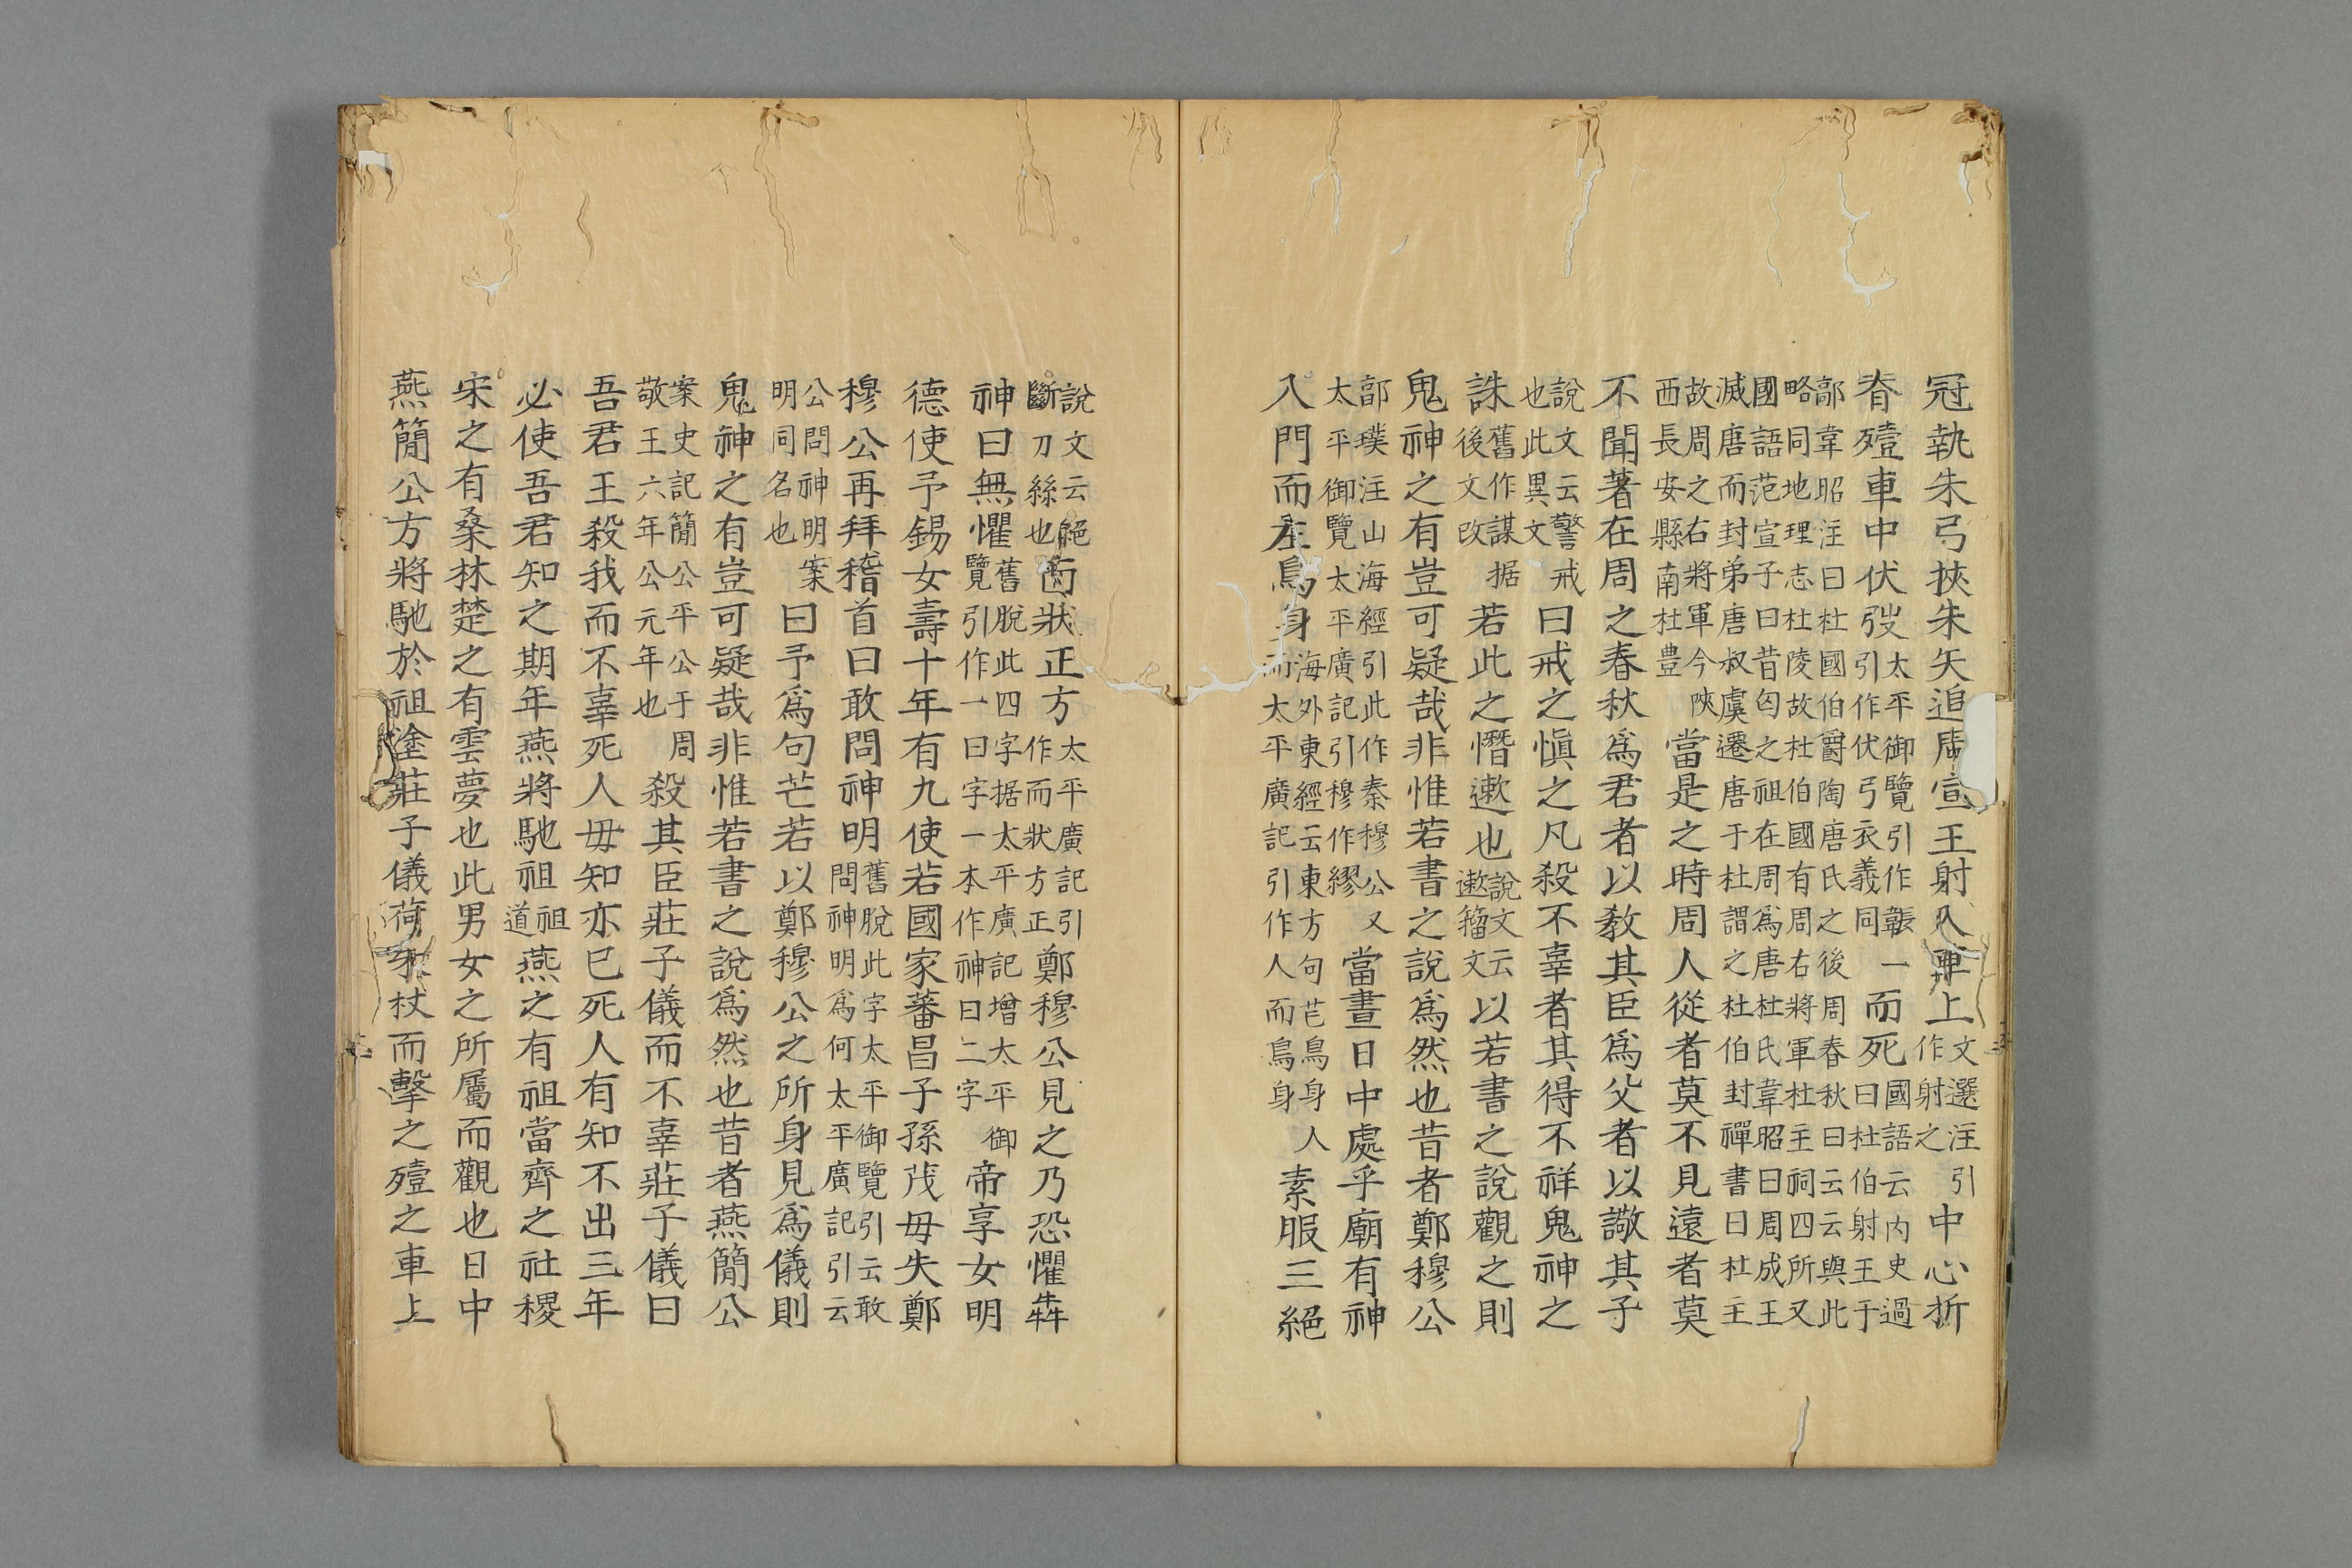 冠執朱弓挾朱矢追周宣王射入車上文選注引作射之中心折
脊殪車中伏弢太平御覽引作韔一引作伏弓衣義同而死國語云內史過曰杜伯射王于
鄗韋昭注曰杜國伯爵陶唐氏之後周春秋曰云云與此
略同地理志杜陵故杜伯國有周右將軍杜主祠四所又
國語范宣子曰昔匄之祖在周爲唐杜氏韋昭曰周成王
滅唐而封弟唐叔虞遷唐于杜謂之杜伯封禪書曰杜主
故周之右將軍今陝西長安縣南杜豊當是之時周人從者莫不見遠者莫
不聞著在周之春秋爲君者以教其臣爲父者以譤其子
說文云警戒也此異文曰戒之愼之凡殺不辜者其得不祥鬼神之
誅舊作謀据後文改若此之憯遬也說文云遬籀文以若書之說觀之則
鬼神之有豈可疑哉非惟若書之說爲然也昔者鄭穆公
郭璞注山海經引此作秦穆公又太平御覽太平廣記引穆作繆當晝日中處乎廟有神
入門而左鳥身海外東經云東方句芒鳥身人而太平廣記引作人而鳥身素服三絕
說文云絕斷刀絲也面狀正方太平廣記引作而狀方正鄭穆公見之乃恐懼犇
神曰無懼舊脫此四字据太平廣記增太平御覽引作一曰字一本作神曰二字帝享女明
德使予錫女壽十年有九使若國家蕃昌子孫茂毋失鄭
穆公再拜稽首曰敢問神明舊脫此字太平御覽引云敢問神明爲何太平廣記引云
公問神明案明同名也曰予爲句芒若以鄭穆公之所身見爲儀則
鬼神之有豈可疑哉非惟若書之說爲然也昔者燕簡公
案史記簡公平公于周敬王六年公元年也殺其臣莊子儀而不辜莊子儀曰
吾君王殺我而不辜死人毋知亦已死人有知不出三年
必使吾君知之期年燕將馳祖祖道燕之有祖當齊之社稷
宋之有桑林楚之有雲夢也此男女之所屬而觀也日中
燕簡公方將馳於祖塗莊子儀荷杖而擊之殪之車上